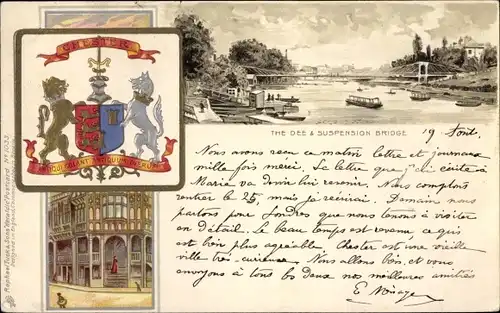 CHESTER
THE DEE & SUSPENSION BRIDGE
19 Sont.
Nous avons reçu ce matin lettre et journaux
mille fois merci. La lettre que j'ai écrite à
Maria va devoir lui revenir. Nous comptons
rentrer le 25, mais je récrirai. Demain nous
partons pour Londres que nous tenons à visiter
en détail. Le beau temps est revenu ce qui
est bien plus agréable. Chester est une vieille
ville très-curieuse. Nous allons bien, et vous
envoyons à tous les deux nos meilleures amitiés
E.
Raphael Tuck & Sons "Heraldic" Postcard Nº 1033